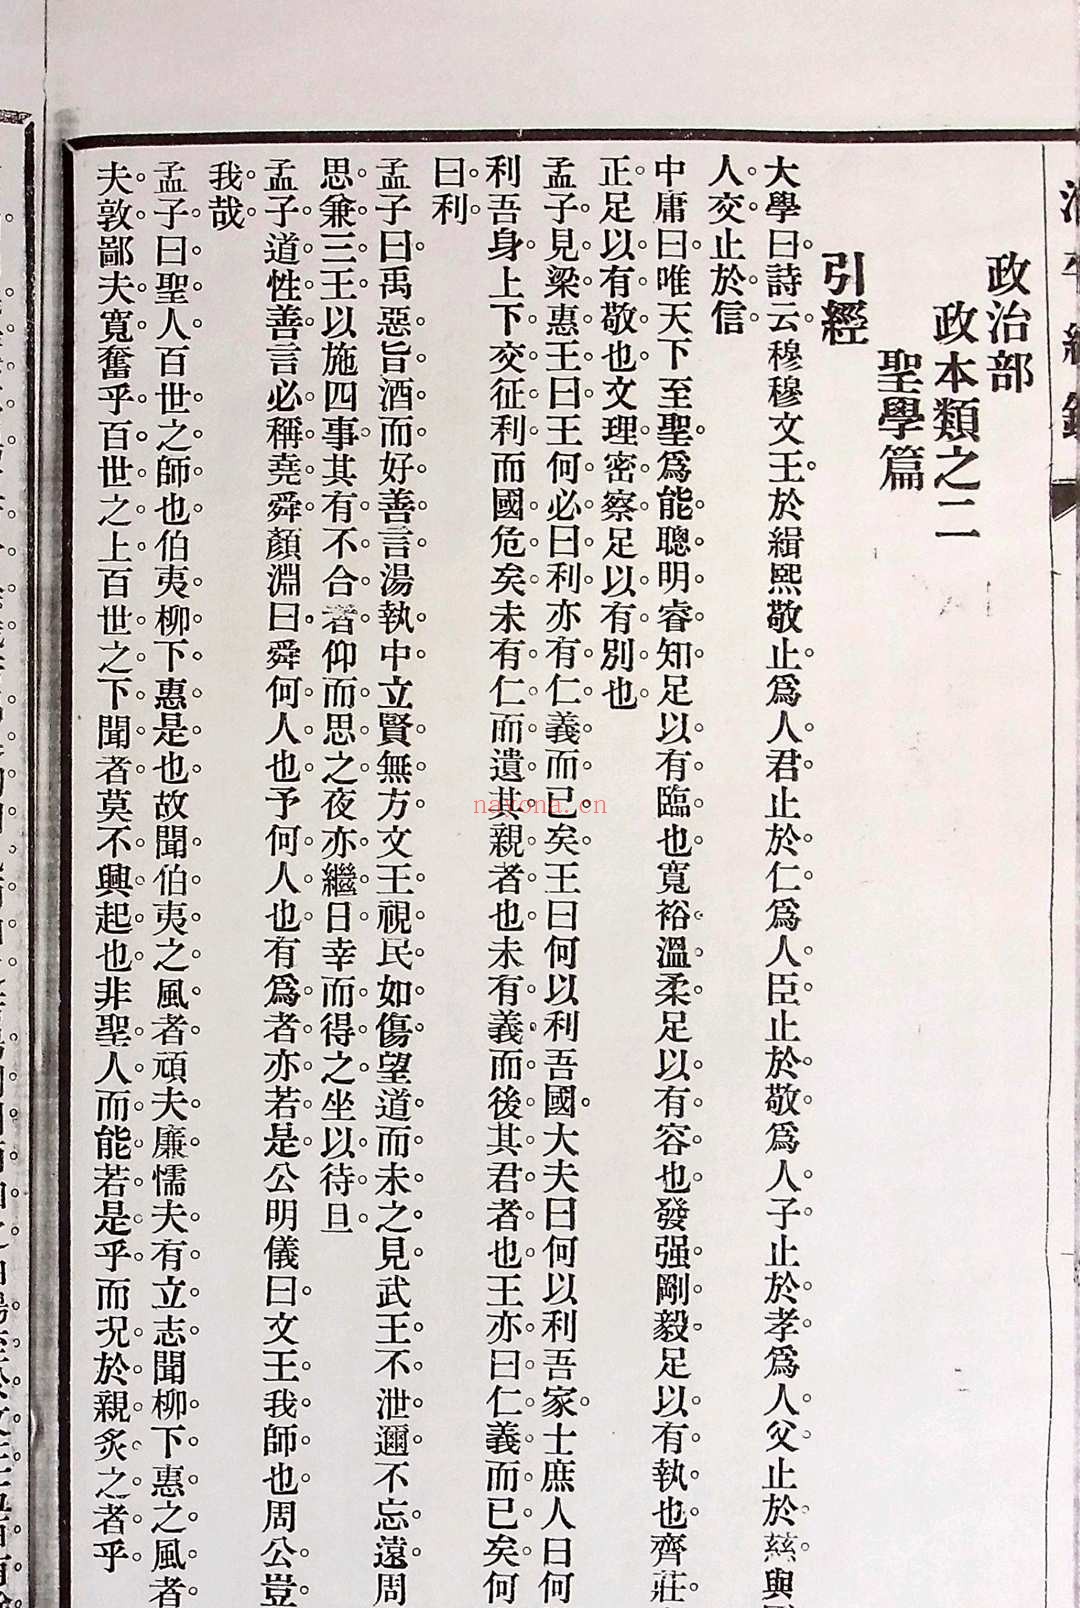 政治部
政本類之二
聖學篇
引經
大學曰詩云穆穆文王於緝熙敬止爲人君止於仁爲人臣止於敬爲人子止於孝爲人父止於慈與
人交止於信
中庸曰唯天下至聖爲能聰明睿知足以有臨也寬裕溫柔足以有容也發强剛毅足以有執也齊莊
正足以有敬也文理密察足以有別也
孟子見梁惠王曰王何必曰利亦有仁義而已矣王曰何以利吾國大夫曰何以利吾家士庶人曰何
利吾身上下交征利而國危矣未有仁而遺其親者也未有義而後其君者也王亦曰仁義而已矣何
曰利
孟子曰禹惡旨酒而好善言湯執中立賢無方文王視民如傷望道而未之見武王不泄邇不忘遠周
思兼三王以施四事其有不合者仰而思之夜亦繼日幸而得之坐以待旦
孟子道性善言必稱堯舜顏淵曰舜何人也予何人也有爲者亦若是公明儀曰文王我師也周公豈
我哉
孟子曰聖人百世之師也伯夷柳下惠是也故聞伯夷之風者頑夫廉懦夫有立志聞柳下惠之風者
夫敦鄙夫寬奮乎百世之上百世之下聞者莫不興起也非聖人而能若是乎而況於親炙之者乎
nayona.cn